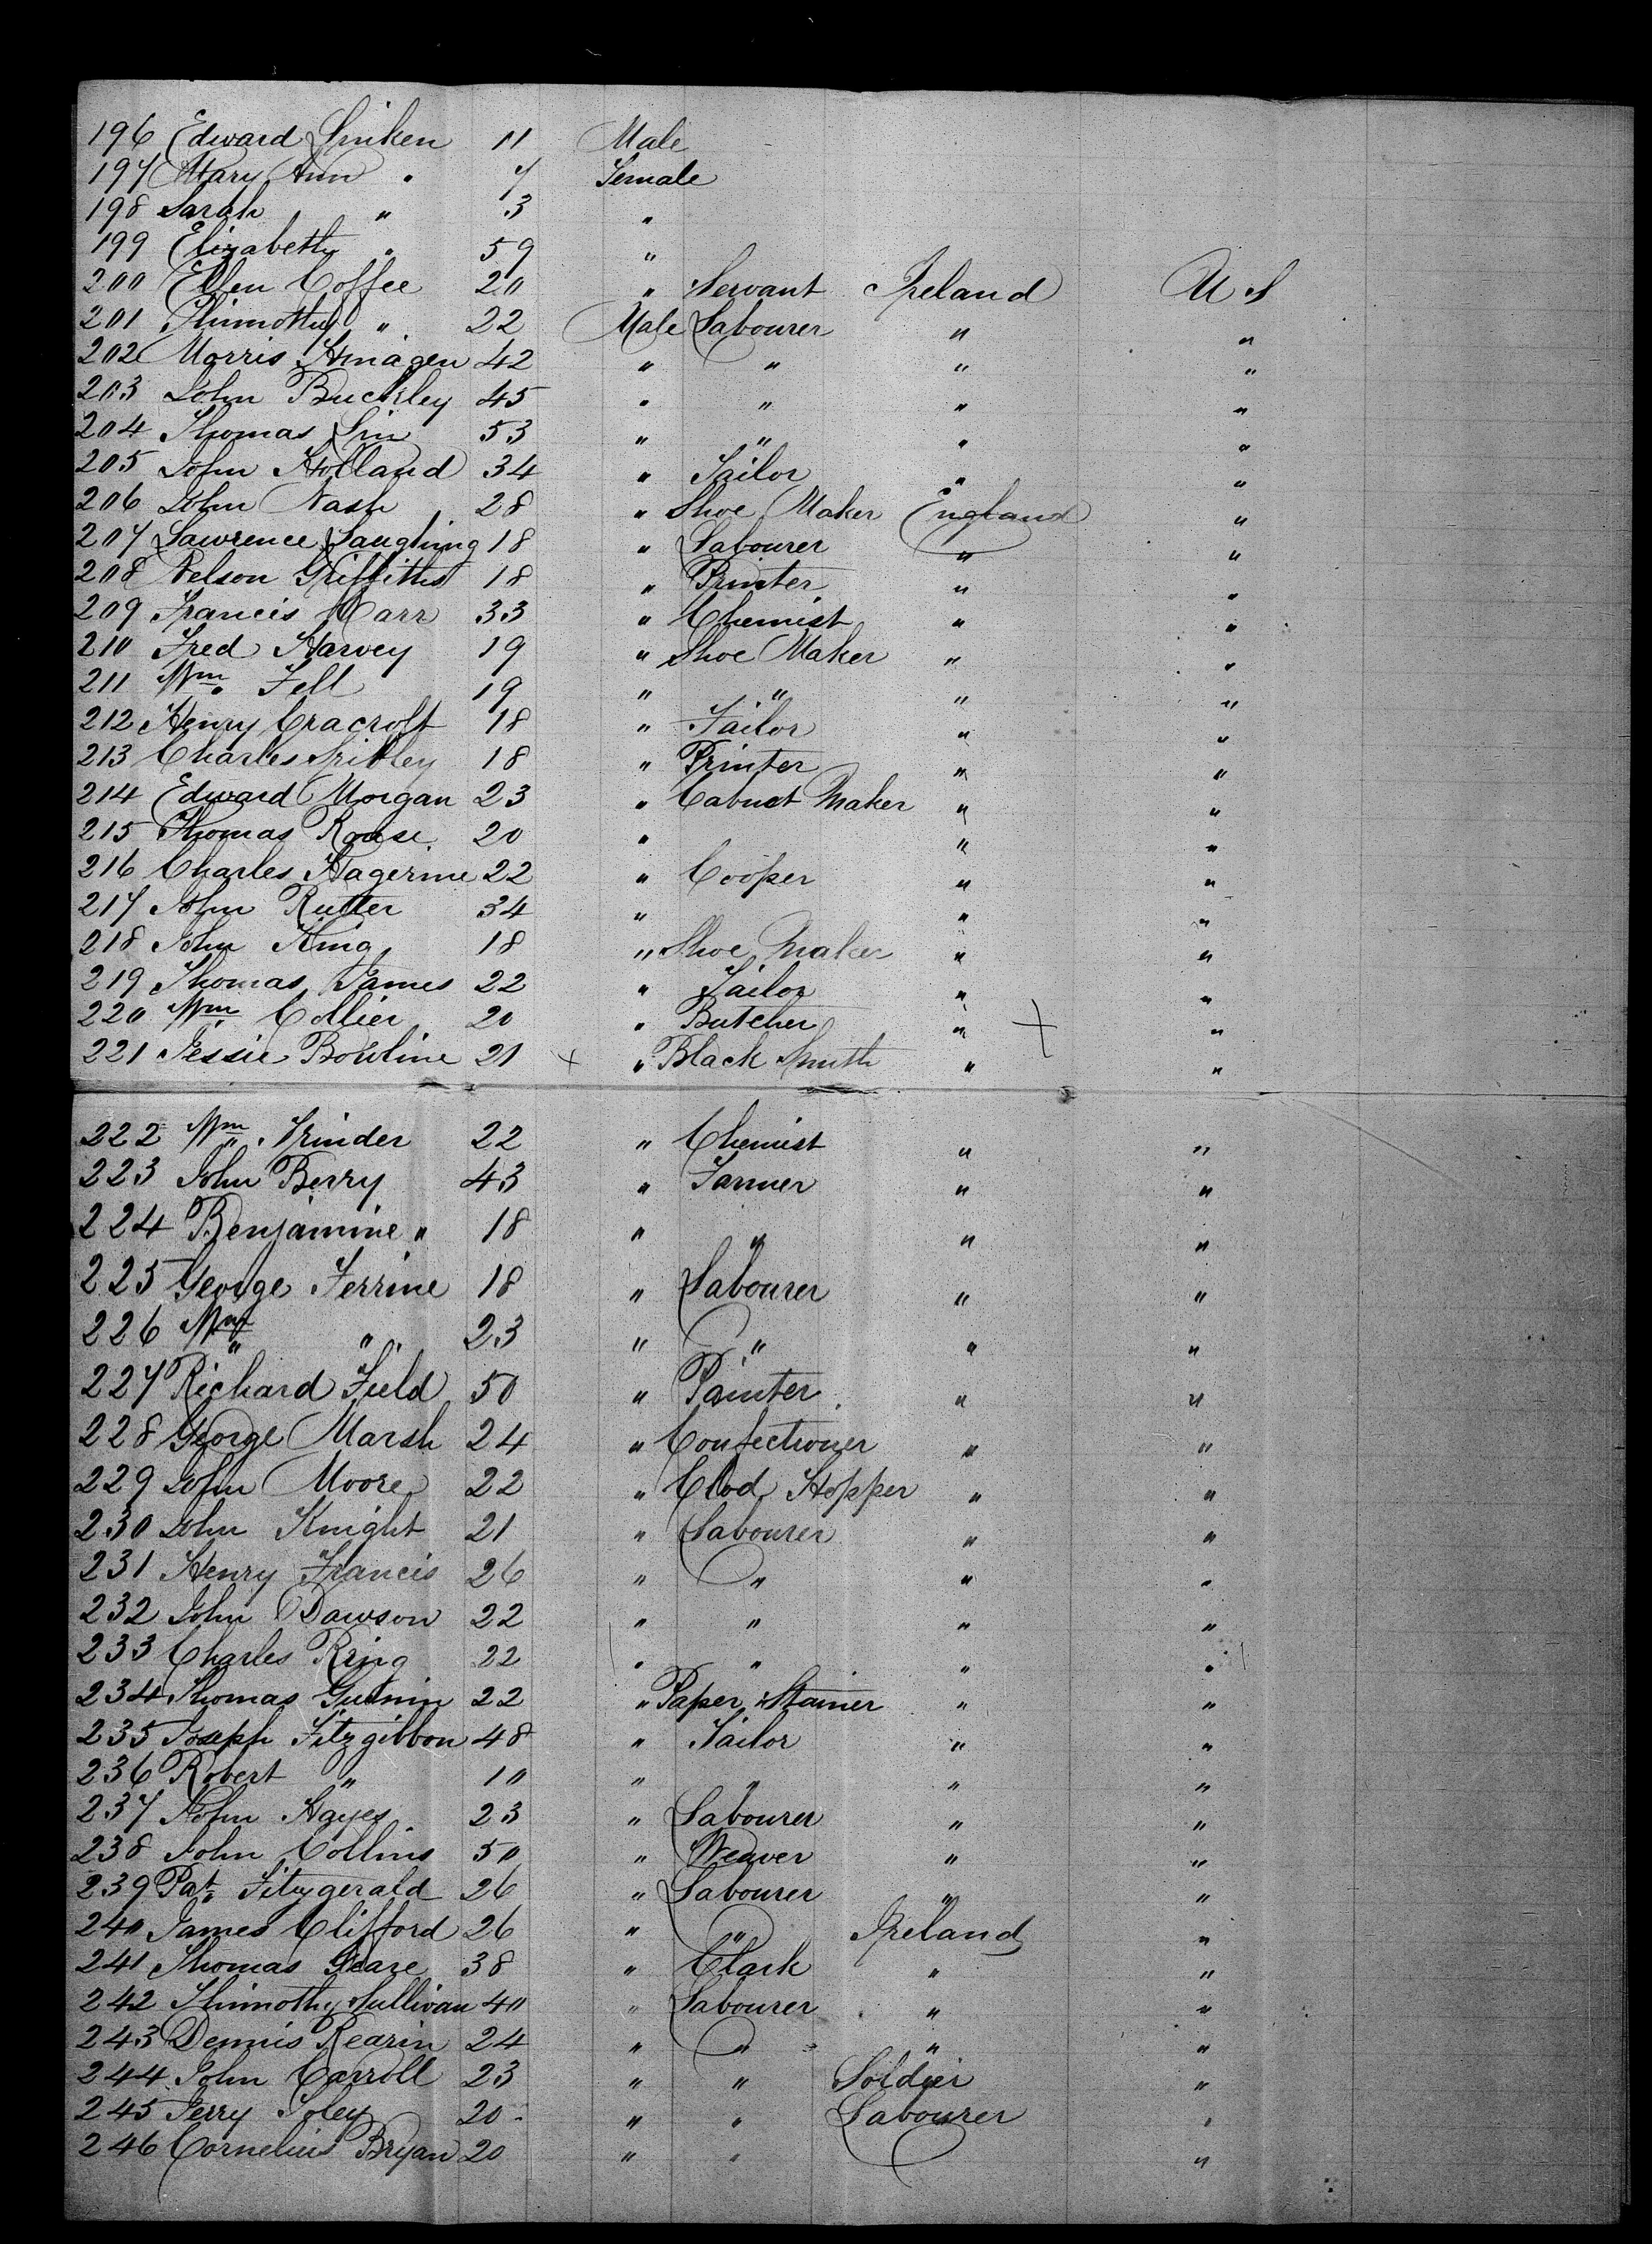 196 Edward Sniken 11 Male
197 Mary Ann " 7 Female
198 Sarah " 3 "
199 Elizabeth " 59 "
200 Ellen Coffee 20 " Servant Ireland U S
201 Thimothy " 22 Male Labourer " "
202 Morris 42 " " " "
203 John Buckley 45 " " " "
204 Thomas 53 " " " "
205 John Holland 34 " Tailor " "
206 John Nash 28 " Shoe Maker England "
207 Lawrence Laughing 18 " Labourer " "
208 Nelson Griffiths 18 " Printer " "
209 Francis Carr 33 " Chemist " "
210 Fred Harvey 19 " Shoe Maker " "
211 Wm Fell 19 " " " "
212 Henry Cracroft 18 " Tailor " "
213 Charles 18 " Printer " "
214 Edward Morgan 23 " Cabnet Maker " "
215 Thomas Rouse 20 " " "
216 Charles Hagerine 22 " Cooper " "
217 John Rutter 34 " " "
218 John King 18 " Shoe Maker " "
219 Thomas James 22 " Tailor " "
220 Wm Collier 20 " Butcher " + "
221 Jessie Bowline 21 + " Black Smith " "
222 Wm Trinder 22 " Chemist " "
223 John Berry 43 " Farmer " "
224 Benjamine " 18 " " " "
225 George Ferrine 18 " Labourer " "
226 Wm " 23 " " " "
227 Richard Field 50 " Painter " "
228 George Marsh 24 " Confectioner " "
229 John Moore 22 " Clod Hopper " "
230 John Knight 21 " Labourer " "
231 Henry Francis 26 " " " "
232 John Dawson 22 " " " "
233 Charles Ring 22 " " " "
234 Thomas 22 " Paper Stainer " "
235 Joseph Fitzgibbon 48 " Tailor " "
236 Robert " 10 " " " "
237 John Hayes 23 " Labourer " "
238 John Collins 50 " Weaver " "
239 Pat. Fitzgerald 26 " Labourer " "
240 James Clifford 26 " " Ireland "
241 Thomas Geare 38 " Clark " "
242 Thimothy Sullivan 40 " Labourer " "
243 Dennis Rearin 24 " " " "
244 John Carroll 23 " " Soldier "
245 Jerry Foley 20 " " Labourer "
246 Cornelius Bryan 20 " " "